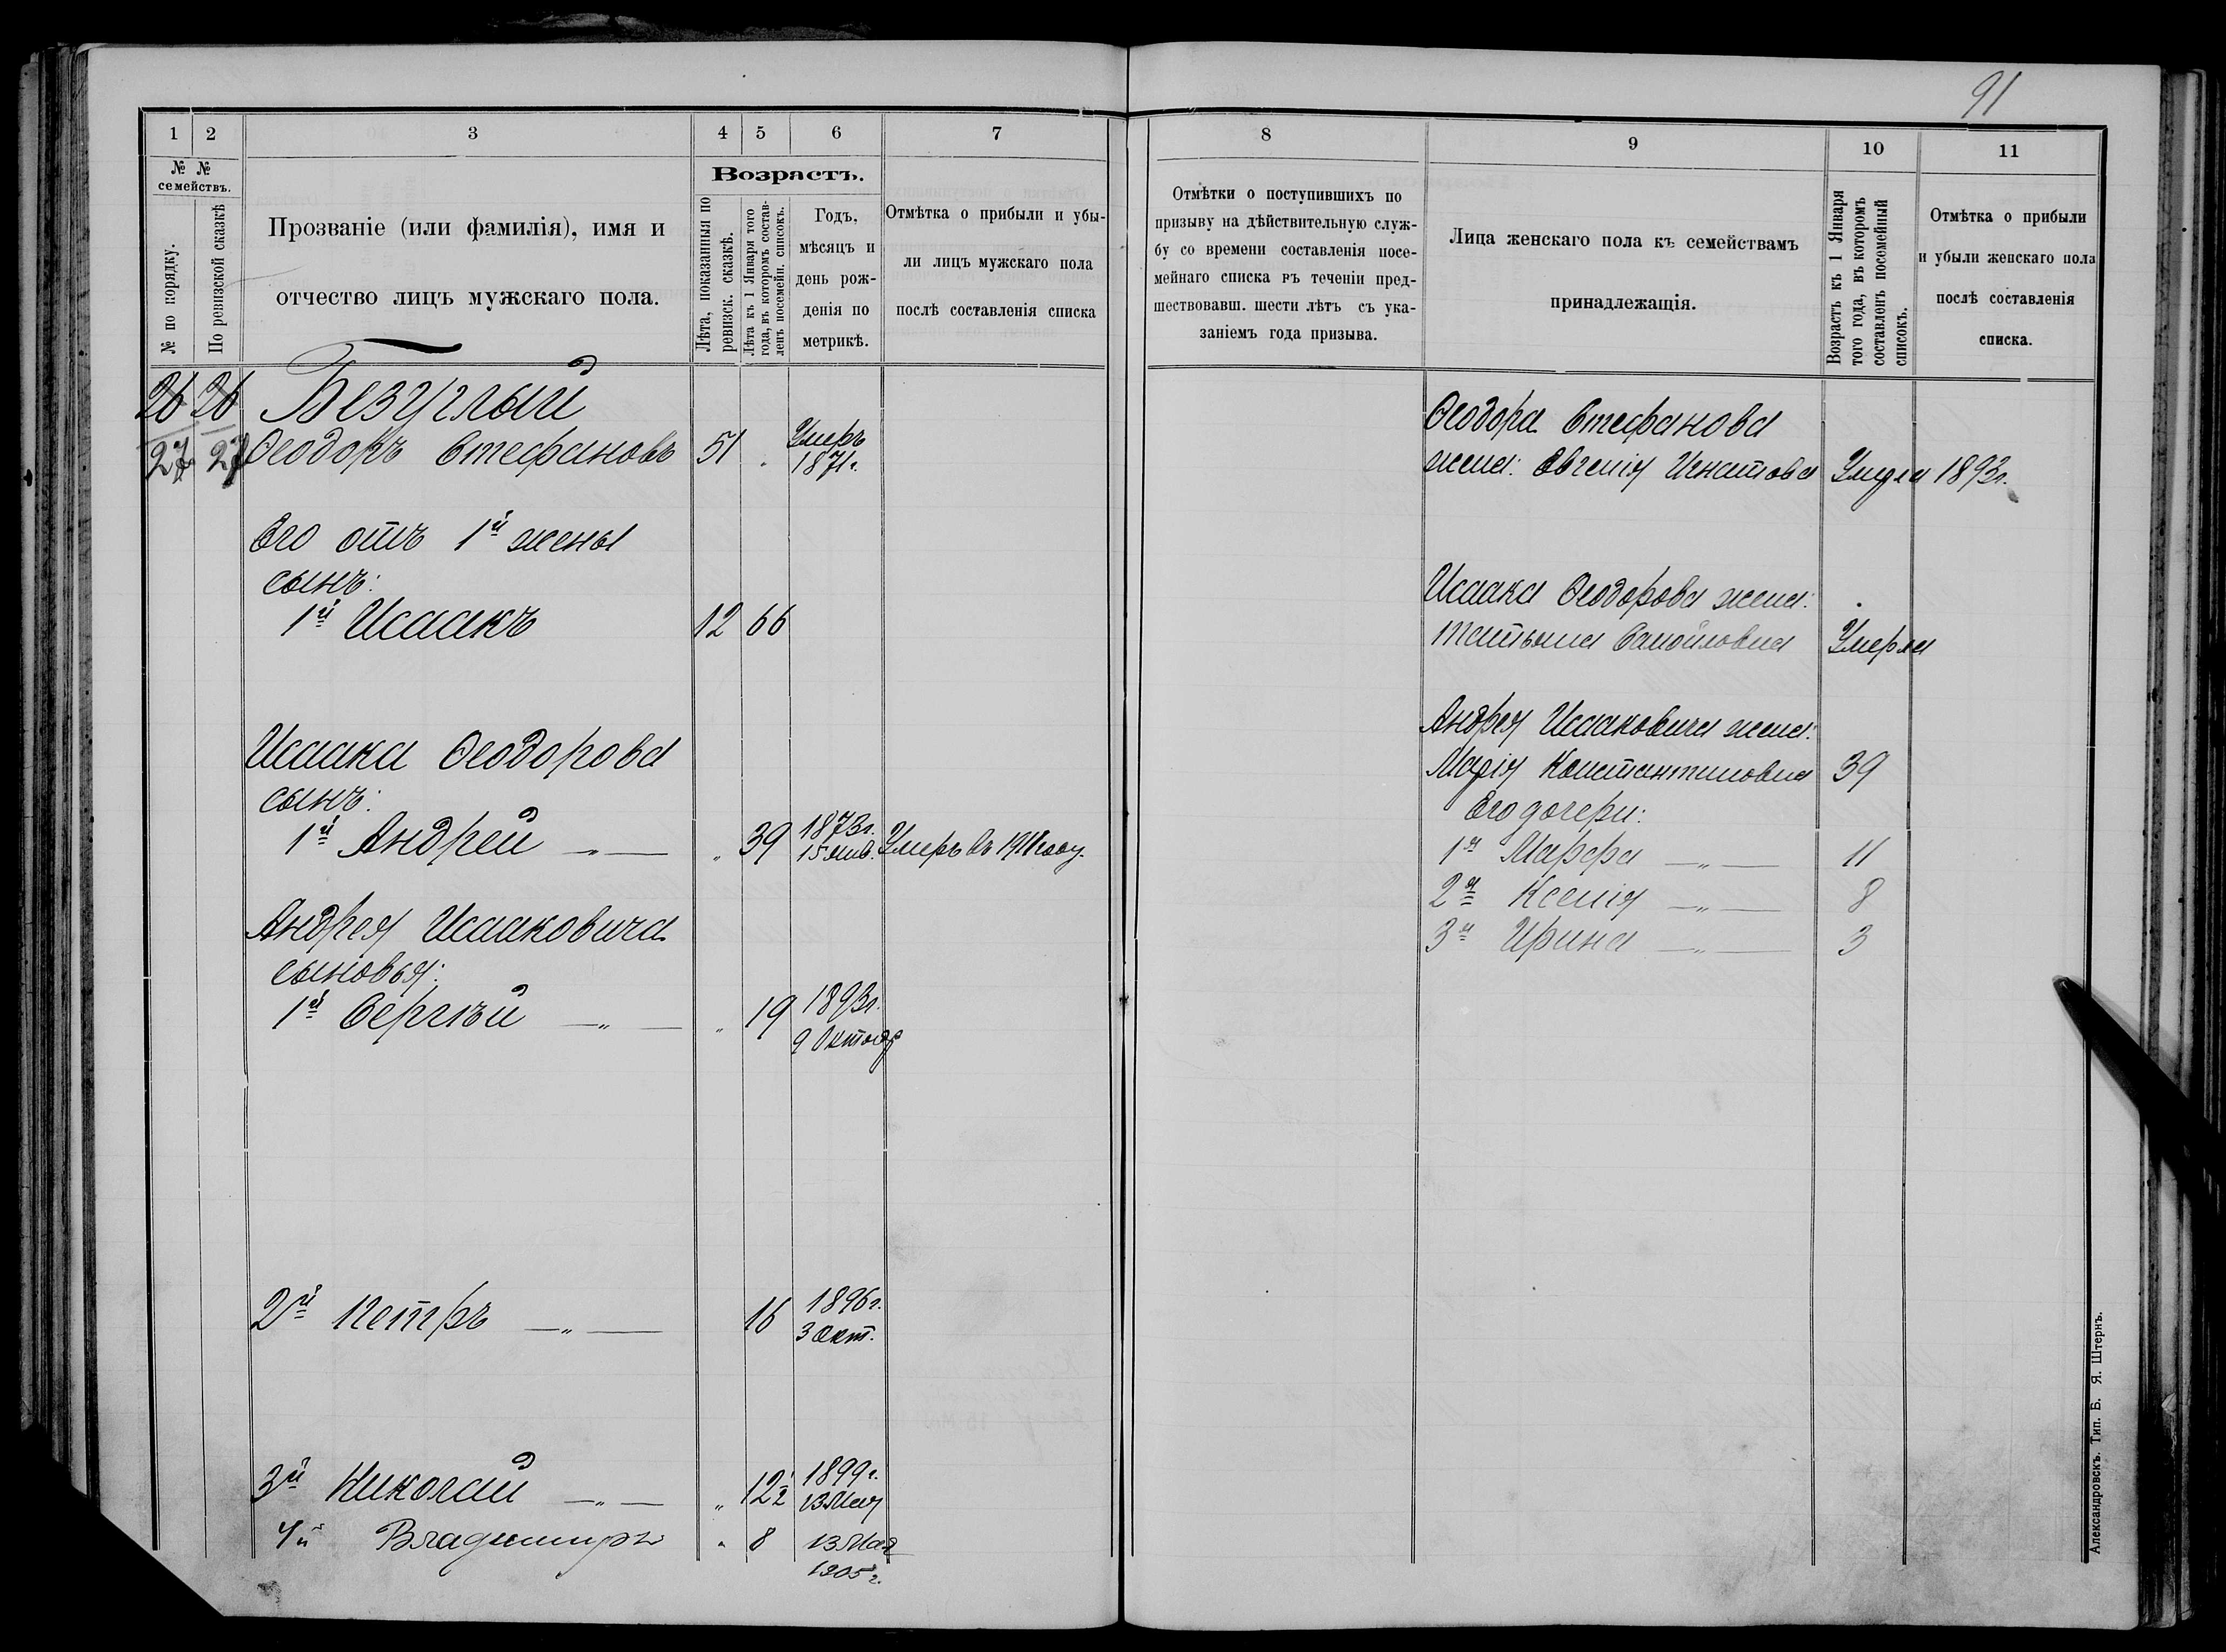 91
1 2 3 4 5 6 7
№ №
семействъ.
№ по порядку.
По ревизской сказкѣ
Прозваніе (или фамилія), имя и
отчество лицъ мужскаго пола.
Возрастъ.
Лѣта, показанныя по
ревизск. сказкѣ.
Лѣта къ 1 Января того
года, въ которомъ состав-
ленъ посемейн. списокъ.
Годъ,
мѣсяцъ и
день рож-
денія по
метрикѣ.
Отмѣтка о прибыли и убы-
ли лицъ мужскаго пола
послѣ составленія списка
26 26 Безуглый
27 27 Ѳеодоръ Стефановъ 51 Умеръ
1871г.
Его отъ 1й жены
сынъ:
1й Исаакъ 12 66
Исаака Ѳеодорова
сынъ:
1й Андрей —„— „ 39 1873г.
15 янв. Умеръ въ 1918 году.
Андрея Исааковича
сыновья:
1й Сергѣй —„— „ 19 1893г.
9 Октобр
2й Петръ —„— 16 1896г.
3 Окт.
3й Николай —„— „ 12½ 1899г.
13 Мая
4й Владимиръ „ 8 13 Мая
1905г.
8 9 10 11
Отмѣтки о поступившихъ по
призыву на дѣйствительную служ-
бу со времени составленія посе-
мейнаго списка въ теченіи пред-
шествовавш. шести лѣтъ съ ука-
заніемъ года призыва.
Лица женскаго пола къ семействамъ
принадлежащія.
Возрастъ къ 1 Января
того года, въ которомъ
составленъ посемейный
списокъ.
Отмѣтка о прибыли
и убыли женскаго пола
послѣ составленія
списка.
Ѳеодора Стефанова
жена: Евгенія Игнатова Умерла 1893г.
Исаака Ѳеодорова жена:
Татьяна Самойловна Умерла
Андрея Исааковича жена:
Марія Константиновна 39
Его дочери:
1я Марфа —„— 11
2я Ксенія —„— 8
3я Ирина —„— 3
Александровскъ. Тип. Б. Я. Штернъ.